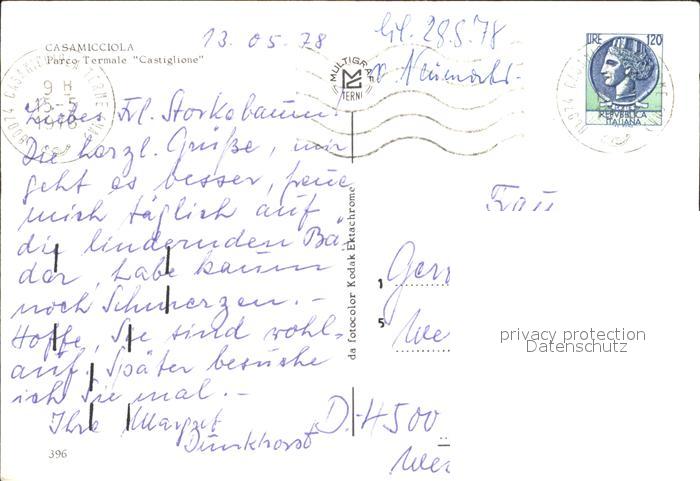 CASAMICCIOLA
Parco Termale "Castiglione"
13. 05. 78
28.5.78
LIRE 120
REPUBBLICA
ITALIANA
MULTIGRAF
TERNI
9 H
15-5
1978
Liebes Frl. Storkobaum!
Die herzl. Grüße, mir
geht es besser, freue
mich täglich auf
die lindernden Bä-
der, habe kaum
noch Schmerzen. -
Hoffe, Sie sind wohl-
auf. Später besuche
ich Sie mal. -
Ihre Margret
da fotocolor Kodak Ektachrome
Frau
1
5
privacy protection
Datenschutz
D-4500
396